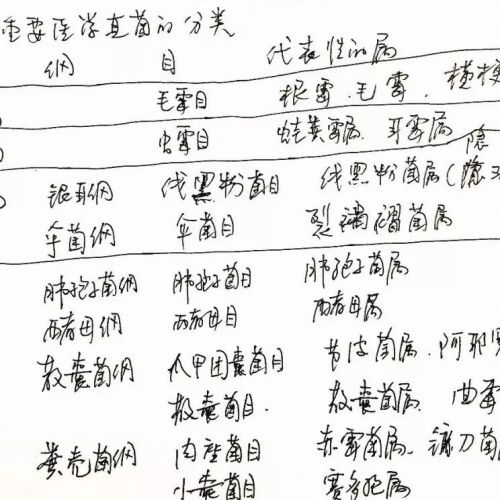 重要医学真菌的分类
纲 目 代表性的属
毛霉目 根霉、毛霉、横梗
虫霉目 蛙粪霉属、耳霉属
银耳纲 线黑粉菌目 线黑粉菌属(隐
伞菌纲 伞菌目 裂褶菌属
肺孢子菌纲 肺孢子菌目 肺孢子菌属
酵母纲 酵母目 酵母属
散囊菌纲 爪甲团囊菌目 节皮菌属、阿耶罗
散囊菌目 散囊菌属、曲霉
粪壳菌纲 肉座菌目 赤霉菌属、镰刀菌
小囊菌目 赛多孢属